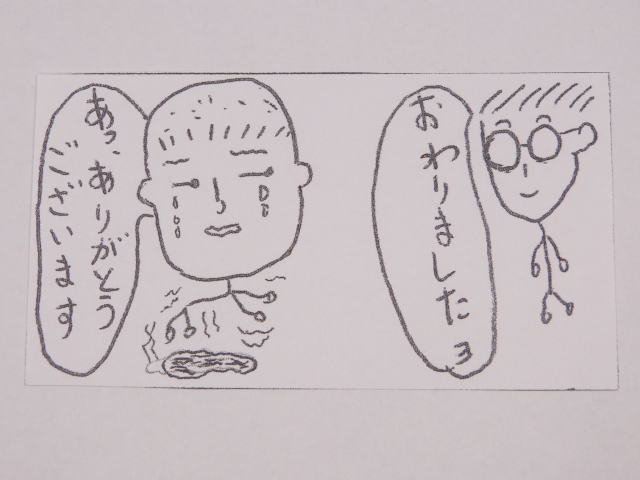 おわりましたョ
あっ、ありがとう
ございます